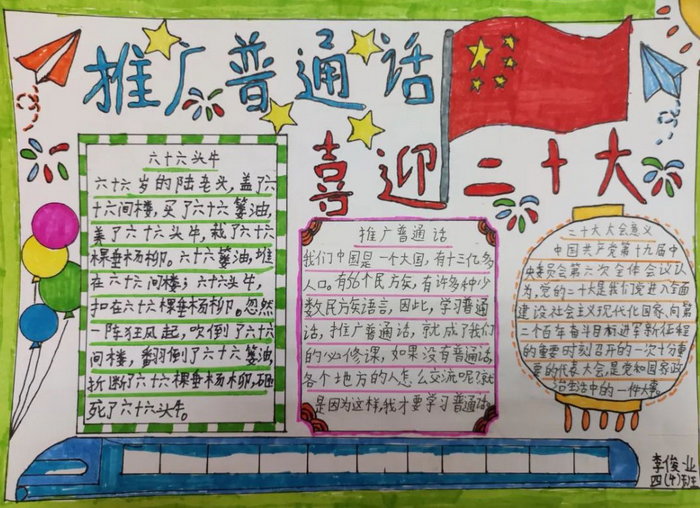 推广普通话
喜迎二十大
六十六头牛
六十六岁的陆老头,盖了六
十六间楼,买了六十六篓油,
养了六十六头牛,栽了六十六
棵垂杨柳。六十六篓油,堆
在六十六间楼;六十六头牛,
扣在六十六棵垂杨柳。忽然
一阵狂风起,吹倒了六十六
间楼,翻倒了六十六篓油,
折断了六十六棵垂杨柳,砸
死了六十六头牛。
推广普通话
我们中国是一个大国,有十三亿多
人口。有56个民族,有许多种少
数民族语言,因此,学习普通
话,推广普通话,就成了我们
的必修课,如果没有普通话
各个地方的人怎么交流呢?就
是因为这样,我才要学习普通话。
二十大大会意义
中国共产党第十九届中
央委员会第六次全体会议认
为,党的二十大是我们党进入全面
建设社会主义现代化国家、向第
二个百年奋斗目标进军新征程
的重要时刻召开的一次十分重
要的代表大会,是党和国家政
治生活中的一件大事。
李俊业
四(4)班